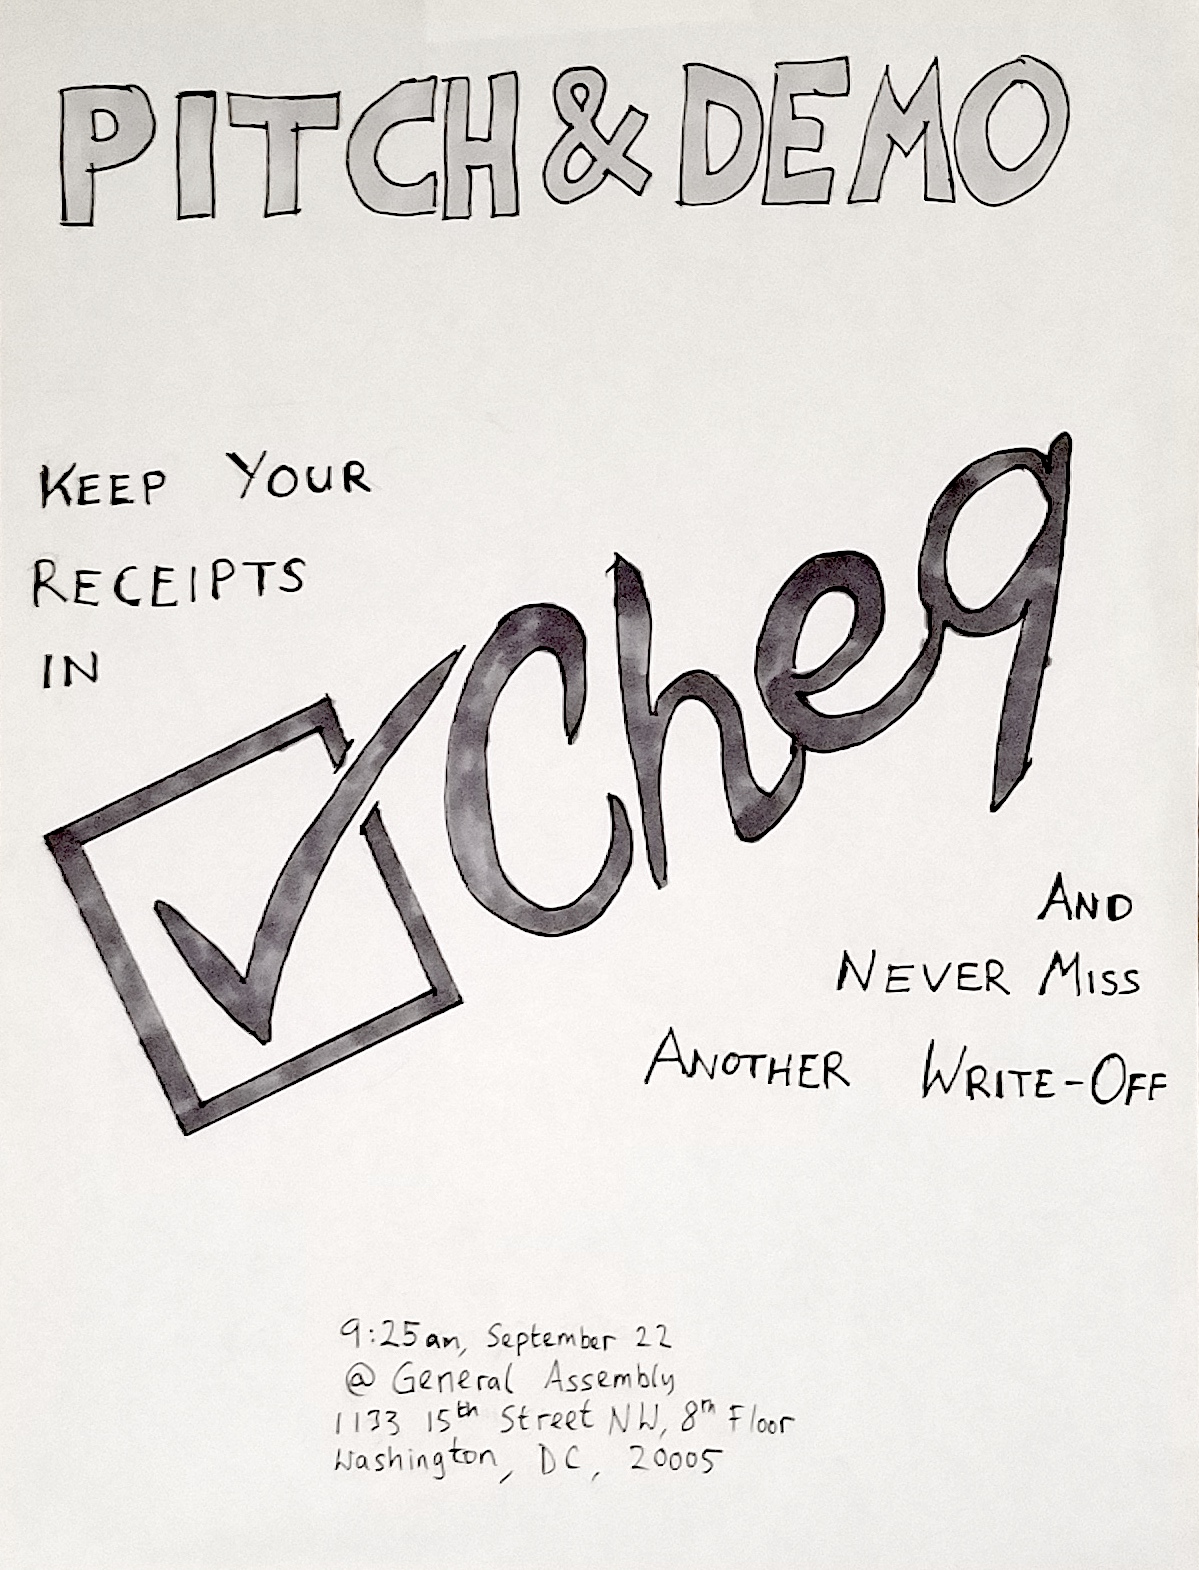 PITCH & DEMO
KEEP YOUR
RECEIPTS
IN
Cheq
AND
NEVER MISS
ANOTHER WRITE-OFF
9:25am, September 22
@ General Assembly
1133 15th Street NW, 8th Floor
Washington, DC, 20005